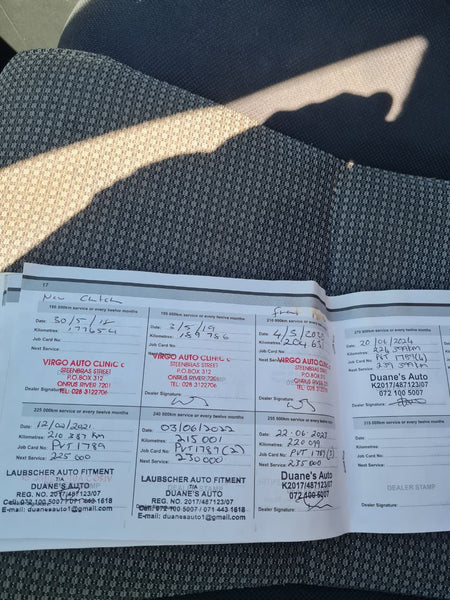 17
New Clutch
180 000km service or every twelve months
Date: 30/5/18
Kilometres: 177654
Job Card No:
Next Service:
VIRGO AUTO CLINIC
STEENBRAS STREET
P.O.BOX 312
ONRUS RIVER 7201
TEL: 028 3122706
Dealer Signature:
195 000km service or every twelve months
Date: 2/5/19
Kilometres: 189 786
Job Card No:
Next Service:
VIRGO AUTO CLINIC
STEENBRAS STREET
P.O.BOX 312
ONRUS RIVER 7201
TEL: 028 3122706
Dealer Signature:
210 000km service or every twelve months
Date: 4/3/2020
Kilometres: 204 631
Job Card No:
Next Service:
VIRGO AUTO CLINIC
STEENBRAS STREET
P.O.BOX 312
ONRUS RIVER
TEL: 028 3122706
Dealer Signature:
270 000km service or every twelve months
Date: 20/04/2024
Kilometres:
Job Card No: PVT 1789(4)
Next Service:
Duane's Auto
K2017/487123/07
072 100 5007
Dealer Signature:
225 000km service or every twelve months
Date: 12/02/2021
Kilometres: 210 387 KM
Job Card No: PVT1789
Next Service: 225 000
LAUBSCHER AUTO FITMENT
T/A
DUANE'S AUTO
REG. NO. 2017/487123/07
Cell: 072 100 5007 / 071 443 1618
E-mail: duanesauto1@gmail.com
240 000km service or every twelve months
Date: 03/06/2022
Kilometres: 215 001
Job Card No: PVT1789(2)
Next Service: 230000
LAUBSCHER AUTO FITMENT
T/A
DUANE'S AUTO
REG. NO. 2017/487123/07
Cell: 072 100 5007 / 071 443 1618
E-mail: duanesauto1@gmail.com
255 000km service or every twelve months
Date: 22-06-2023
Kilometres: 220 099
Job Card No: PVT 1789(3)
Next Service: 235000
Duane's Auto
K2017/487123/07
072 100 5007
Dealer Signature:
315 000km service or every twelve months
Date:
Kilometres:
Job Card No:
Next Service:
DEALER STAMP
Dealer Signature: